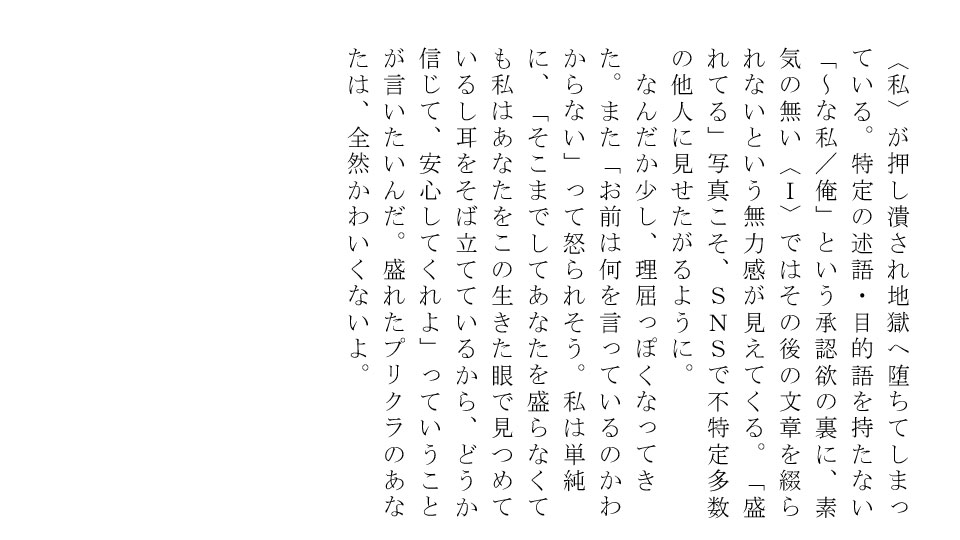 〈私〉が押し潰され地獄へ堕ちてしまっ
ている。特定の述語・目的語を持たない
「～な私／俺」という承認欲の裏に、素
気の無い〈Ｉ〉ではその後の文章を綴ら
れないという無力感が見えてくる。「盛
れてる」写真こそ、ＳＮＳで不特定多数
の他人に見せたがるように。
　なんだか少し、理屈っぽくなってき
た。また「お前は何を言っているのかわ
からない」って怒られそう。私は単純
に、「そこまでしてあなたを盛らなくて
も私はあなたをこの生きた眼で見つめて
いるし耳をそば立てているから、どうか
信じて、安心してくれよ」っていうこと
が言いたいんだ。盛れたプリクラのあな
たは、全然かわいくないよ。